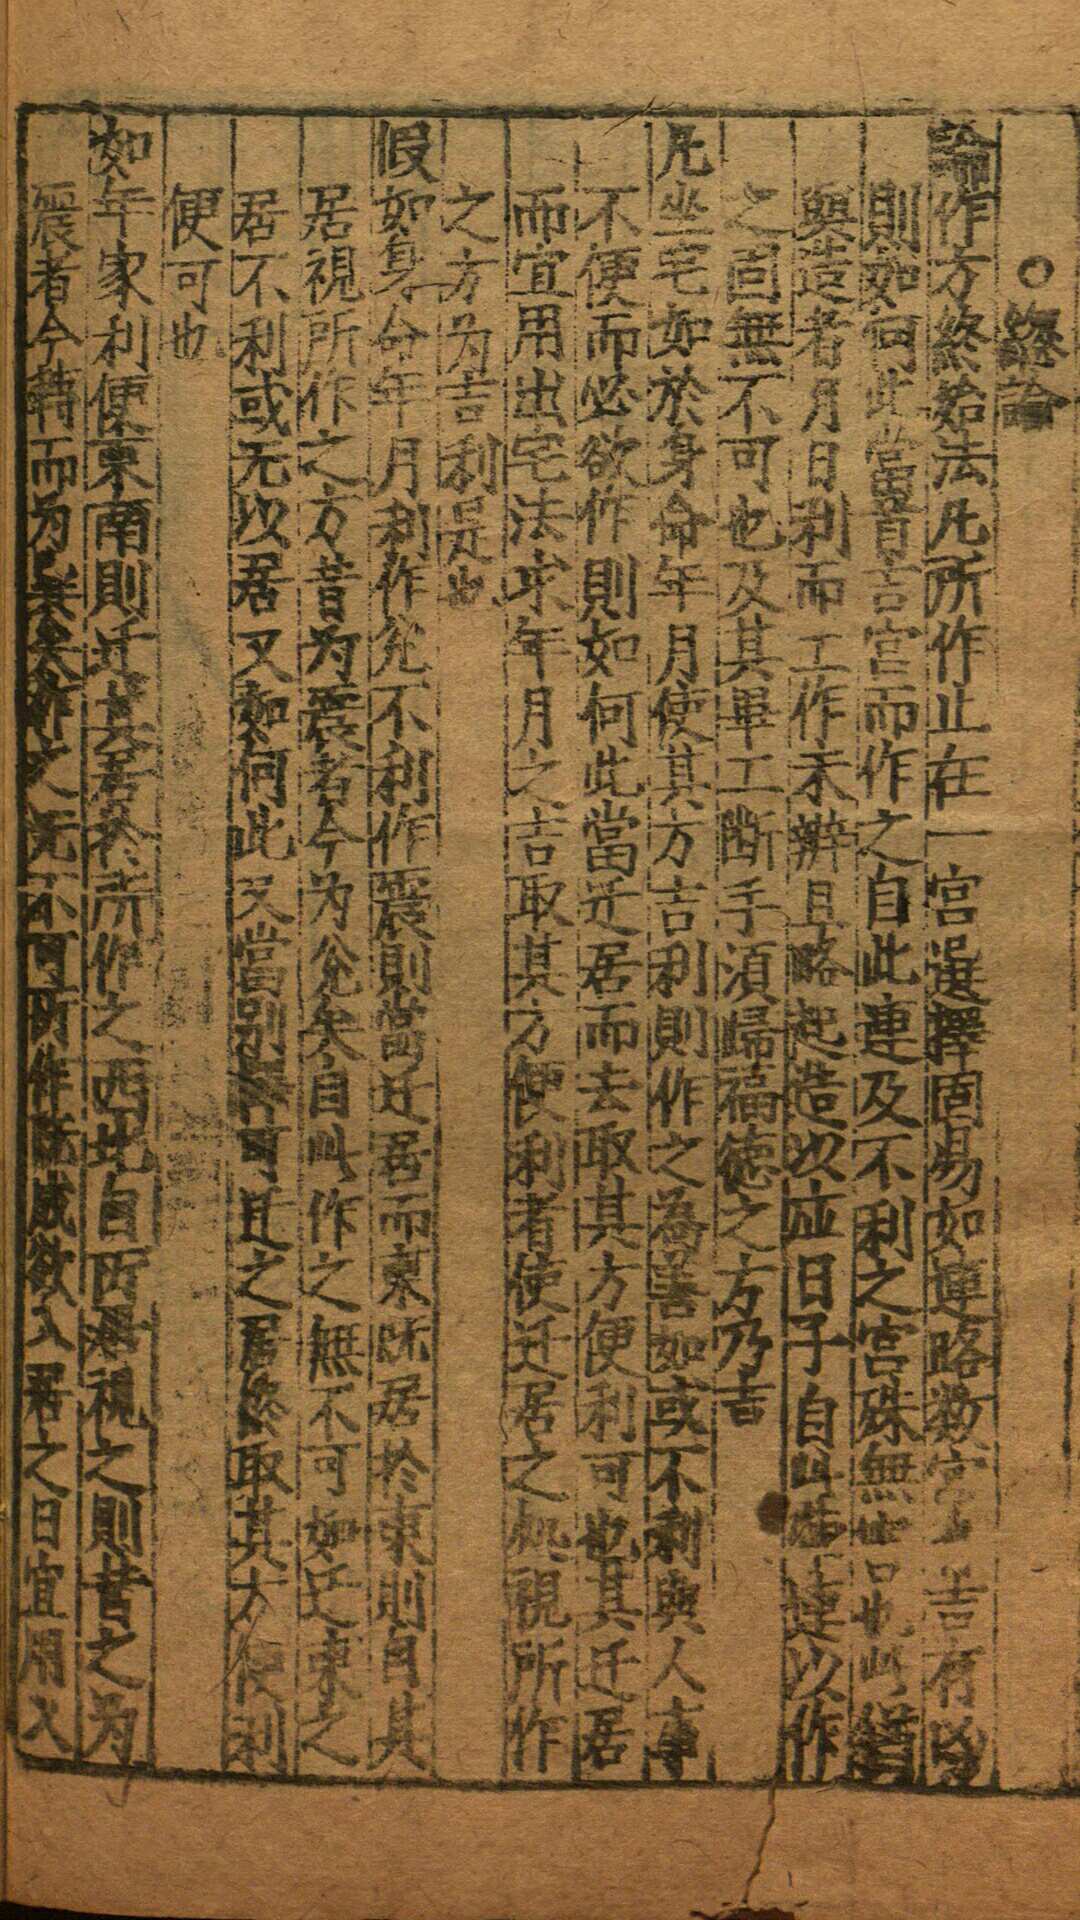 ○總論
論作方終始法凡所作止在一宮選擇固易如連略數宮吉有凶
則如何此當首吉宮而作之自此連及不利之宮殊無害也此猶
與造者月日利而工作未辦且略起造以應日子自此連以作
之固無不可也及其畢工斷手須歸福德之方乃吉
凡坐宅如於身命年月使其方吉利則作之為善如或不利與人事
不便而必欲作則如何此當迁居而去取其方便利可也其迁居
而宜用出宅法求年月之吉取其方便利者使迁居之処視所作
之方为吉利是也
假如身命年月利作兊不利作震則當迁居而東既居於東則自其
居視所作之方昔为震者今为兊矣自此作之無不可如迁東之
居不利或无以居又如何此又當別可迁之居終取其方便利
便可也
如年家利便東南則迁其居於所作之西北自西北視之則昔之为
震者今轉而为巽矣作之无不可所作既成欲入居之日宜用入